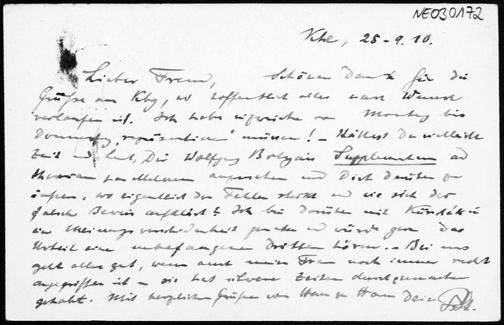 NE030172
25-9.10.
Lieber Freund, Schönen Dank für die
Grüße aus Kbg, wo hoffentlich alles nach Wunsch
verlaufen ist. Ich habe von Montag bis
Donnerstag "repräsentieren" müssen! – Hättest Du vielleicht
Zeit und Lust, Dir Wolfgang Bolyais Supplementum ad
anzusehen und Dich darüber zu
äußern, wo eigentlich der Fehler steckt und wie sich der
falsche Beweis aufklärt? Ich bin darüber mit Kürschák in
eine Meinungsverschiedenheit geraten und würde gern das
Urteil eines unbefangenen Dritten hören. – Bei uns
geht alles gut, wenn auch meine Frau noch immer recht
angegriffen ist – sie hat schwere Zeiten durchzumachen
gehabt. Mit herzlichen Grüßen von Haus zu Haus Dein